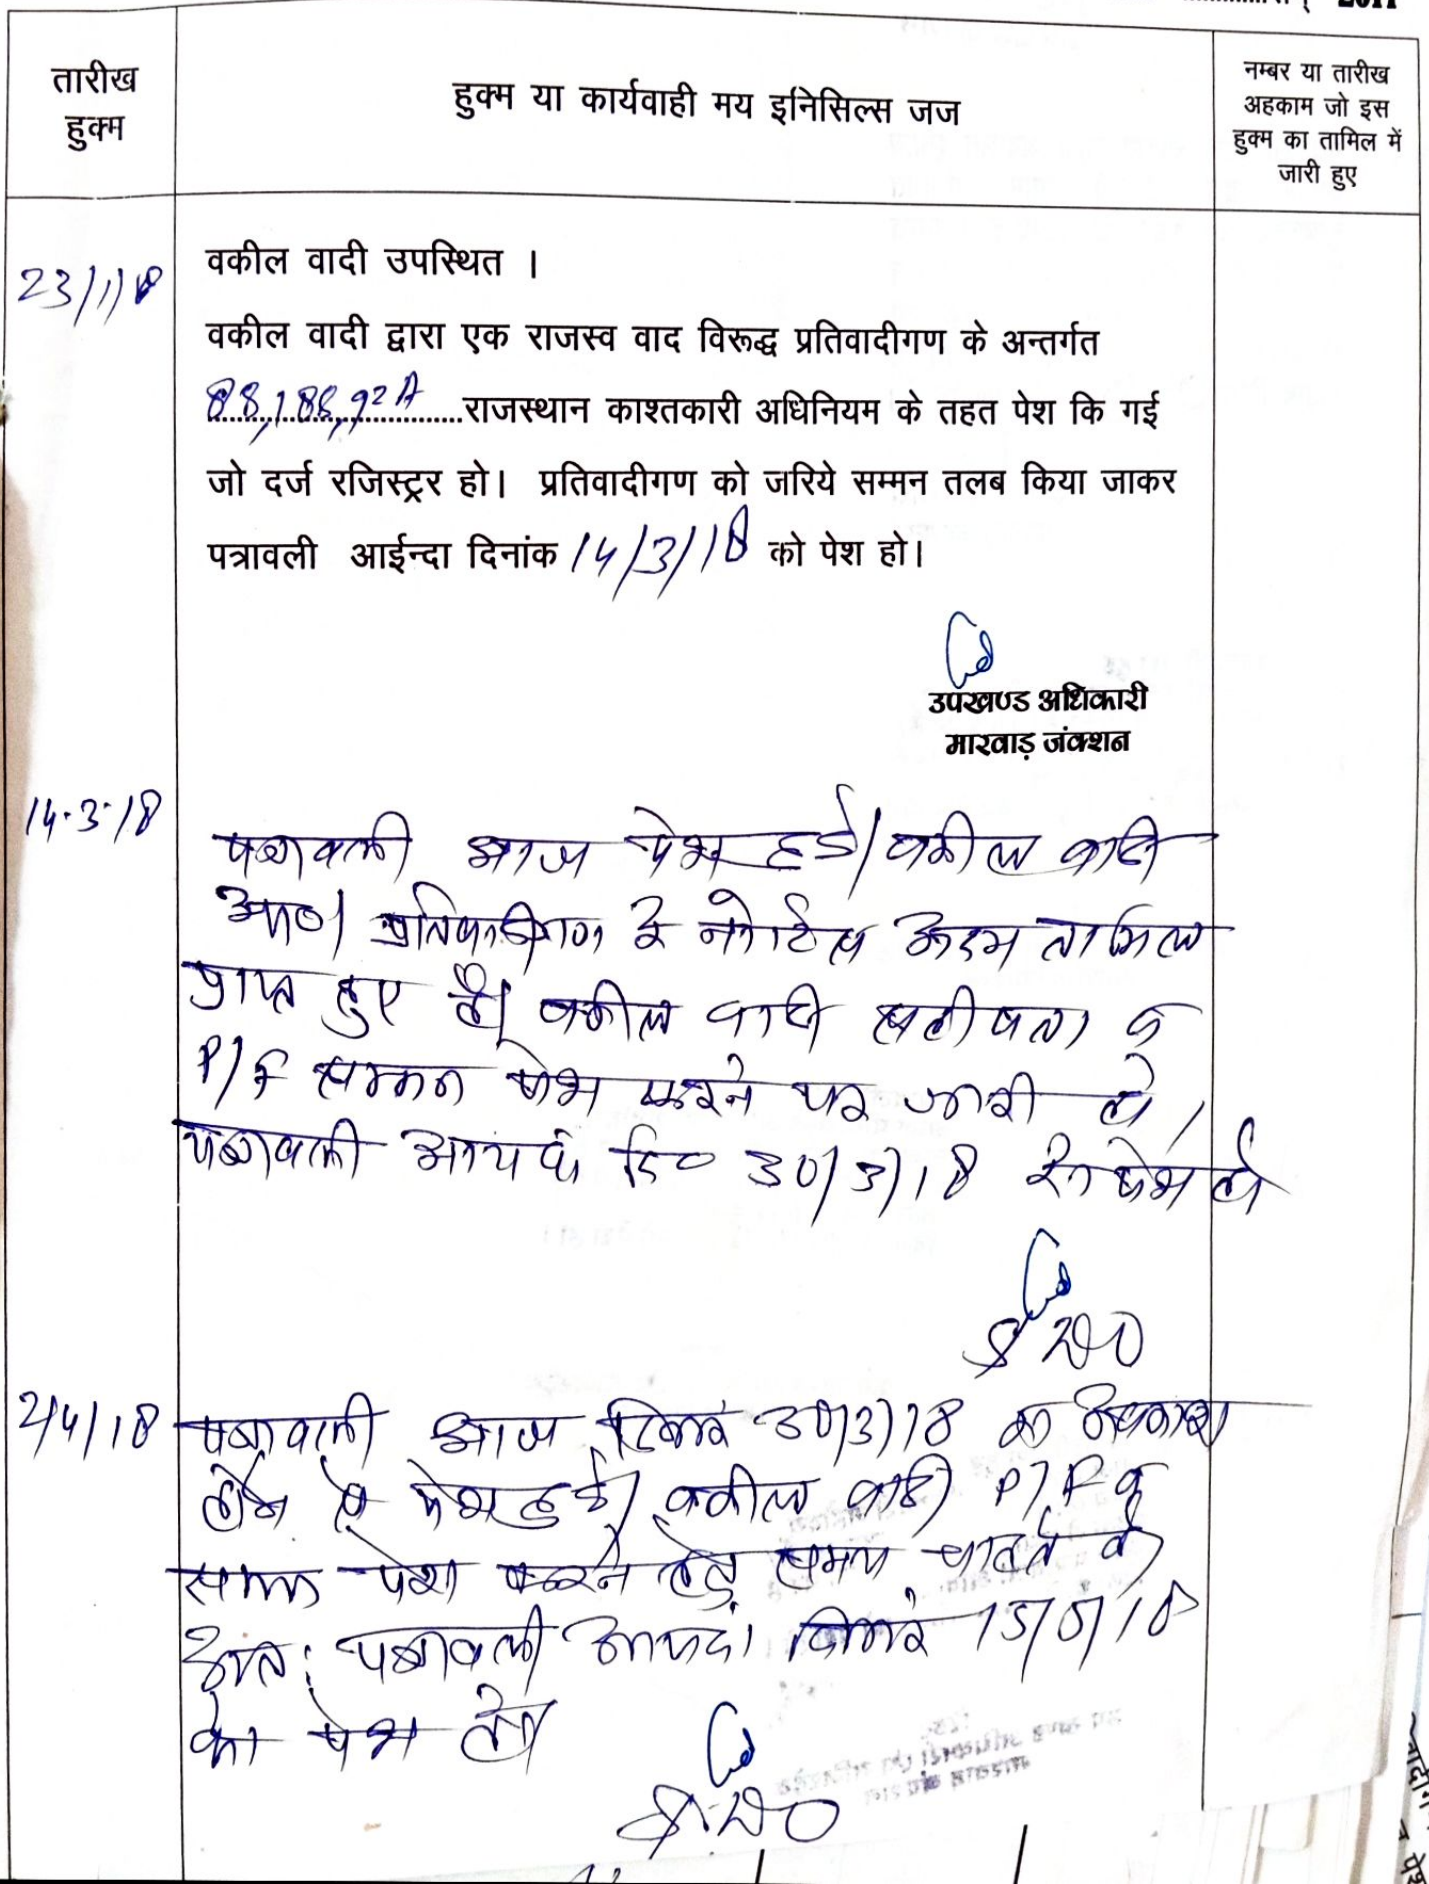 2011
तारीख
हुक्म
हुक्म या कार्यवाही मय इनिसिल्स जज
नम्बर या तारीख
अहकाम जो इस
हुक्म का तामिल में
जारी हुए
23/1/18
वकील वादी उपस्थित ।
वकील वादी द्वारा एक राजस्व वाद विरूद्ध प्रतिवादीगण के अन्तर्गत
88,188,92A राजस्थान काश्तकारी अधिनियम के तहत पेश कि गई
जो दर्ज रजिस्ट्रर हो। प्रतिवादीगण को जरिये सम्मन तलब किया जाकर
पत्रावली आईन्दा दिनांक 14/3/18 को पेश हो।
उपखण्ड अधिकारी
मारवाड़ जंक्शन
14.3.18
पत्रावली आज पेश हुई। वकील वादी
प्रतिवादीगण के नोटिस अदम तामिल
प्राप्त हुए है। वकील वादी
P/F सम्मन पेश करने पर जारी हो।
पत्रावली दि० 30/3/18 को पेश हो
SDO
2/4/18
पत्रावली आज दिनांक 30/3/18 का अवकाश
होने से पेश हुई। वकील वादी P/F व
पेश करने हेतु समय चाहते है
अतः पत्रावली आयंदा दिनांक 15/5/18
को पेश हो।
SDO